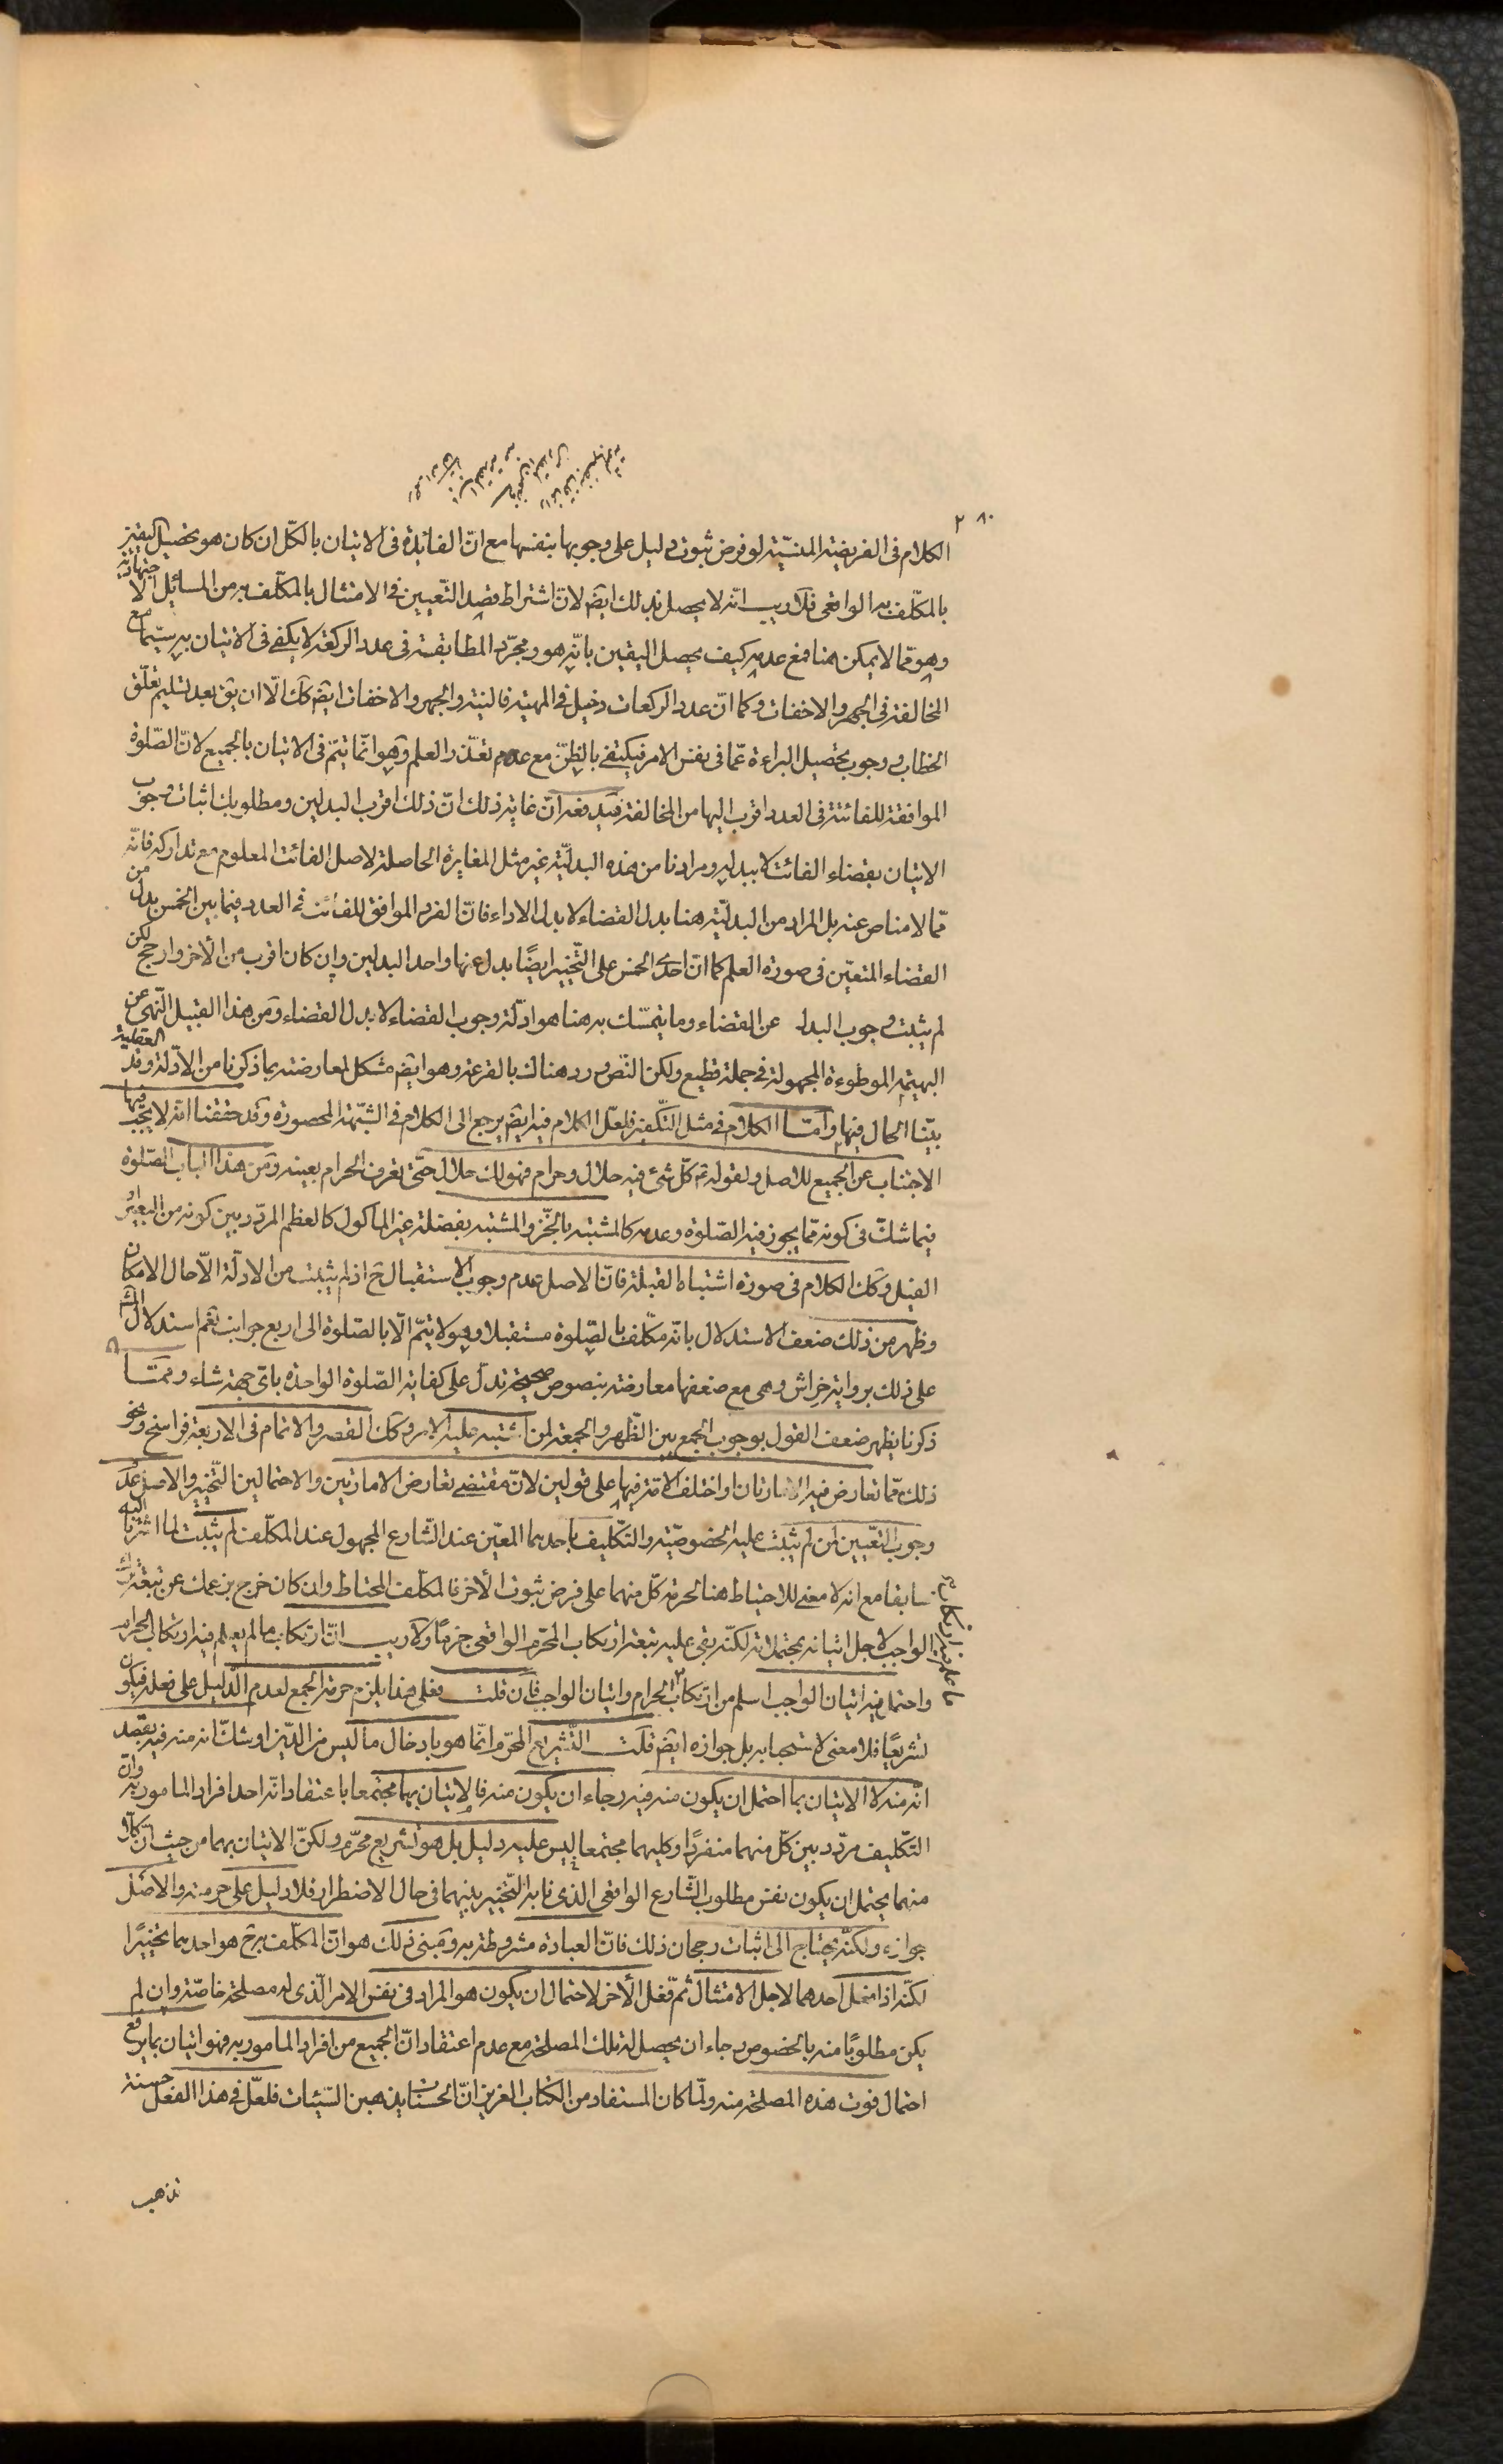 ٢٨٠
الكلام فى الفريضة المنسيّة لو فرض ثبوت دليل على وجوبها بنفسها مع انّ الفائدة فى الاتيان بالكلّ ان كان هو تحصيل اليقين
بالمكلّف به الواقعى فلا ريب انّه لا يحصل بذلك ايضً لانّ اشتراط قصد التّعيين فى الامتثال بالمكلّف به من المسائل الاجتهاديّة
وهو ممّا لا يمكن هنا فمع عدمه كيف يحصل اليقين بانّه هو ومجرّد المطابقة فى عدد الركعة لا يكفى فى الاتيان به سيّما مع
المخالفة فى الجهر والاخفات وكما انّ عدد الركعات دخيل فى المهيّة فالنية والجهر والاخفات ايضً كك الّا ان يق بعد تسليم تعلّق
الخطاب ووجوب تحصيل البراءة عمّا فى نفس الامر فيكتفى بالظنّ مع عدم تعذّر العلم وهو انّما يتمّ فى الاتيان بالجميع لانّ الصّلوة
الموافقة للفائتة فى العدد اقرب اليها من المخالفة فيدفعه انّ غاية ذلك انّ ذلك اقرب البدلين ومطلوبك اثبات وجوب
الاتيان بقضاء الفائت لا ببدله ومرادنا من هذه البدليّة غير مثل المغايرة الحاصلة لاصل الفائت المعلوم مع تداركه فانّه
ممّا لا مناص عنه بل المراد من البدليّة هنا بدل القضاء لا بدل الاداء فانّ الفرد الموافق للفائت فى العدد فيما بين الخمس بدل من
القضاء المتعيّن فى صورة العلم كما انّ احدى الخمس على التّخيير ايضًا بدل عنها واحد البدلين وان كان اقرب من الأخر وارجح لكن
لم يثبت وجوب البدل عن القضاء وما يتمسّك به هنا هو ادلّة وجوب القضاء لا بدل القضاء ومن هذا القبيل النّهى عن
البهيمة الموطوءة المجهولة فى جملة قطيع ولكن النّص ورد هناك بالقرعة وهو ايضً مشكل لمعارضته بما ذكرنا من الادّلة العقلية وقد
بيّنا الحال فيها وامّا الكلام فى مثل التّكفين فلعلّ الكلام فيه ايضً يرجع الى الكلام فى الشّبهة المحصورة وقد حققنا انّه لا يجب فيها
الاجتناب عن الجميع للاصل ولقوله ع كلّ شئ فيه حلال وحرام فهو لك حلال حتّى تعرف الحرام بعينه ومن هذا الباب الصّلوة
فيما شكّ فى كونه ممّا يجوز فيه الصّلوة وعدمه كالمشتبه بالخّز والمشتبه بفضلة غير المأكول كالعظم المردّد بين كونه من البعير او
الفيل وكك الكلام فى صورة اشتباه القبلة فانّ الاصل عدم وجوب الاستقبال ح اذ لم يثبت من الادلّة الّا حال الامكان
وظهر من ذلك ضعف الاستدلال بانّه مكلّف بالصّلوة مستقبلا وهو لا يتمّ الّا بالصّلوة الى اربع جوانب نعم استدلال المش
على ذلك برواية خراش وهى مع ضعفها معارضة بنصوص صحيحة تدلّ على كفاية الصّلوة الواحدة باىّ جهة شاء وممّا
ذكرنا يظهر ضعف القول بوجوب الجمع بين الظّهر والجمعة لمن اشتبه عليه الامر وكك القصر والاتمام فى الاربعة فراسخ ونحو
ذلك ممّا تعارض فيه الامارتان او اختلف الامّة فيها على قولين لانّ مقتضى تعارض الامارتين والاحتمالين التّخيير والاصل عدم
وجوب التّعيين لمن لم يثبت عليه الخصوصّية والتّكليف باحدهما المعيّن عند الشّارع المجهول عند المكلّف لم يثبت لما اشرنا اليه
سابقا مع انه لا معنى للاحتياط هنا لحرمة كلّ منهما على فرض ثبوت الأخر فالمكلّف المحتاط وان كان خرج بزعمك عن تبعة ترك
الواجب لاجل اتيانه بمحتملاته لكنّه بقى عليه تبعة ارتكاب المحرّم الواقعى جزمًا ولا ريب انّ ارتكاب ما لم يعلم فيه ارتكاب الحرام
واحتمل فيه اتيان الواجب اسلم من ارتكاب الحرام واتيان الواجب فان قلت فعلى هذا يلزم حرمة الجمع لعدم الدّليل على فعله فيكون
تشريعًا فلا معنى لاستحبابه بل جوازه ايضً قلت التّشريع المحرّم انّما هو بادخال ما ليس من الدّين او شكّ انه منه فيه بقصد
انّه منه لا الاتيان بما احتمل ان يكون منه فيه رجاء ان يكون منه فالاتيان بهما مجتمعا باعتقاد انّه احد افراد المامور به وانّ
التّكليف مردّد بين كلّ منهما منفردًا وكليهما مجتمعا ليس عليه دليل بل هو تشريع محرّم ولكنّ الاتيان بهما من حيث انّ كلّا
منهما يحتمل ان يكون نفس مطلوب الشّارع الواقعى الذى نابه التّخيير بينهما فى حال الاضطرار فلا دليل على حرمته والاصل
جوازه ولكنّه يحتاج الى اثبات رجحان ذلك فانّ العبادة مشروطة به ومبنى ذلك هو انّ المكلّف به ح هو احدهما تخييرًا
لكنّه اذا فعل احدهما لاجل الامتثال ثمّ فعل الأخر لاحتمال ان يكون هو المراد فى نفس الامر الّذى له مصلحة خاصّة وان لم
يكن مطلوبًا منه بالخصوص رجاء ان يحصل له تلك المصلحة مع عدم اعتقاد انّ الجميع من افراد المامور به فهو اتيان بما يرفع
احتمال فوت هذه المصلحة منه ولمّا كان المستفاد من الكتاب العزيز انّ الحسنات يذهبن السّيّئات فلعلّ فى هذا الفعل حسنة
تذهب